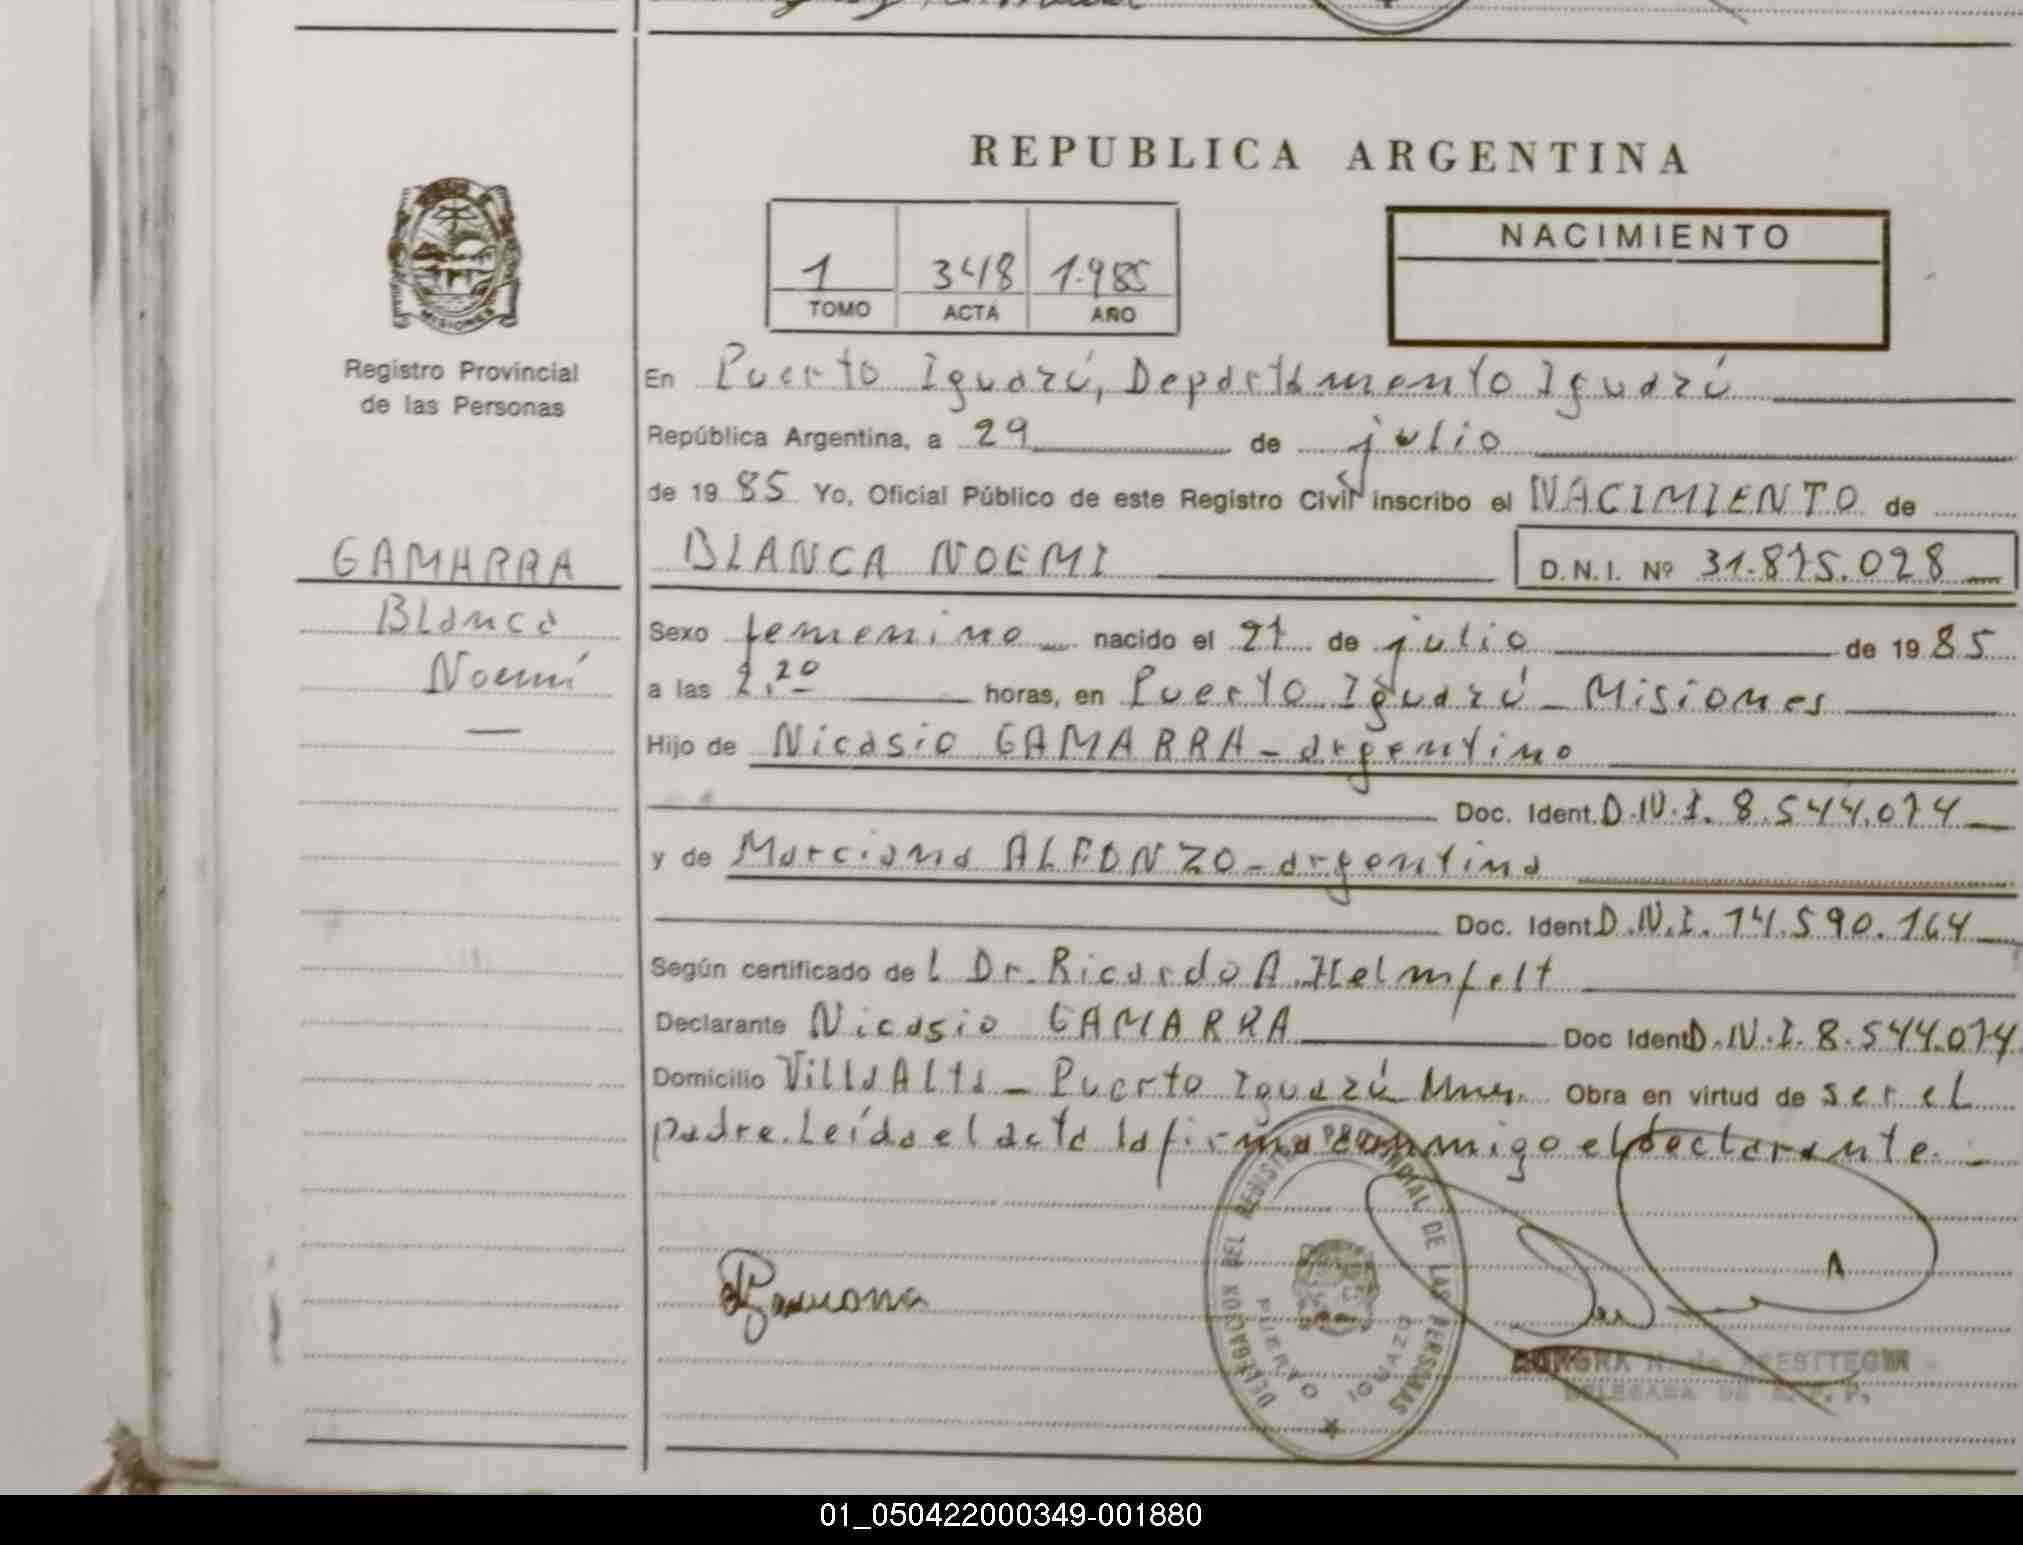 REPUBLICA ARGENTINA
1 348 1.985
TOMO ACTA AÑO
NACIMIENTO
MISIONES
Registro Provincial
de las Personas
En Puerto Iguazú, Departamento Iguazú
República Argentina, a 29 de julio
de 19 85 Yo, Oficial Público de este Registro Civil inscribo el NACIMIENTO de
GAMARRA
Blanca
Noemí
BLANCA NOEMI
D.N.I. Nº 31.875.028
Sexo femenino nacido el 21 de julio de 19 85
a las 2,20 horas, en Puerto Iguazú - Misiones
Hijo de Nicasio GAMARRA - argentino
Doc. Ident. D.N.I. 8.544.074
y de Marciana ALFONZO - argentina
Doc. Ident D.N.I. 14.590.164
Según certificado de l Dr. Ricardo A. Helmfelt
Declarante Nicasio GAMARRA Doc Ident D.N.I. 8.544.074
Domicilio Villa Alta - Puerto Iguazú Mnes. Obra en virtud de ser el
padre. Leída el acta la firma conmigo el declarante. -
DELEGACION DEL REGISTRO PROVINCIAL DE LAS PERSONAS
PUERTO IGUAZU
01_050422000349-001880